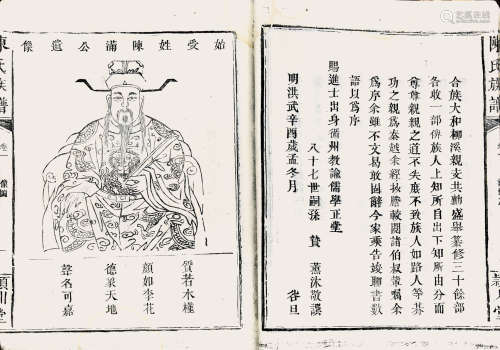 陳氏族譜
潁川堂
合族大和柳溪親支共勷盛舉纂修三十餘部
各收一部俾族人上知所自出下知所由分而
尊尊親親之道不失庶不致族人如路人等綦
功之親爲秦越余經披謄較閱諸伯叔輩囑余
爲序余雖不文易敢固辭今家乘告竣聊書數
語以爲序
賜進士出身循州教諭儒學正堂
八十七世嗣孫 贊 燕汝敬謹
明洪武辛酉歲孟冬月 谷旦
始受姓陳滿公遺像
質若木槿
顏如李花
德業天地
聲名可嘉
陳氏族譜
卷一
像圖
潁川堂